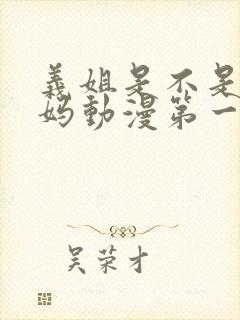 義姐是不是
妈動漫第一
吴荣才